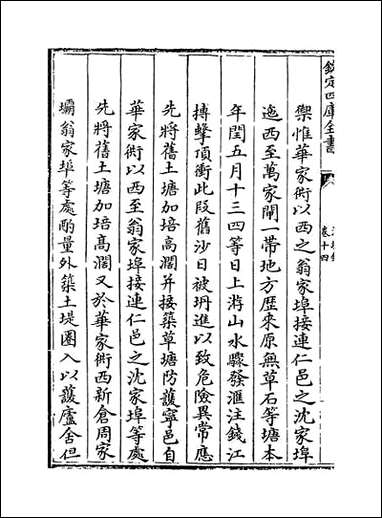 欽定四庫全書
卷十四
禦惟華家衖以西之翁家埠接連仁邑之沈家埠
迤西至萬家閘一帶地方歷來原無草石等塘本
年閏五月十三四等日上游山水驟發滙注錢江
搏擊頂衝此叚舊沙日被坍進以致危險異常應
先將舊土塘加培高濶并接築草塘防護寧邑自
華家衖以西至翁家埠接連仁邑之沈家埠等處
先將舊土塘加培高濶又於華家衖西新倉周家
壩翁家埠等處酌量外築土堤圈入以護廬舍但